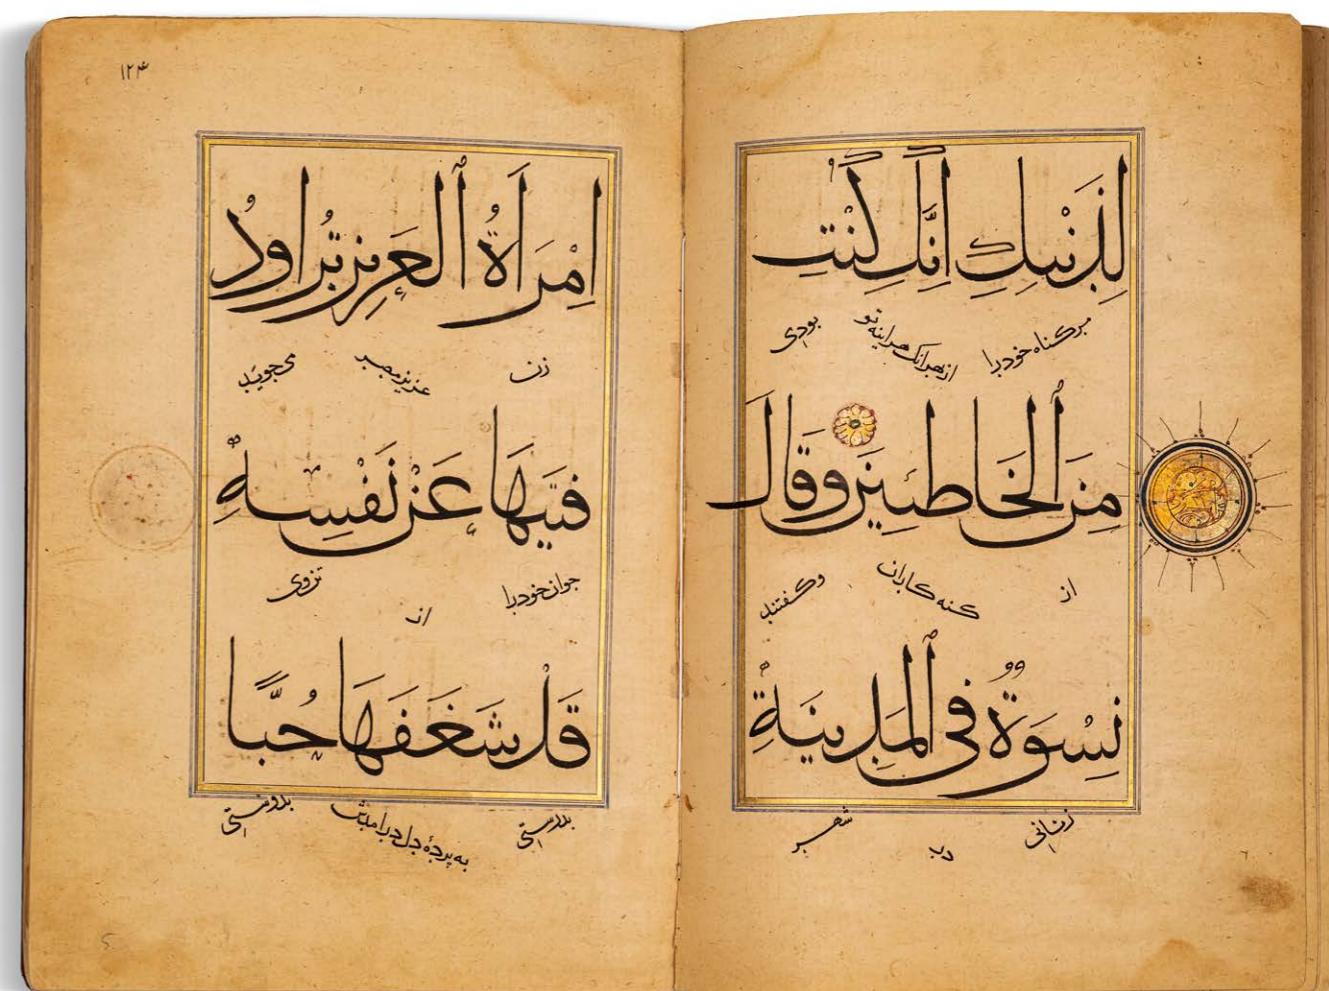 لِذَنْبِكِ اِنَّكِ كُنْتِ
مر گناه خود را از بهر آنک هراینه تو بودی
مِنَ الْخَاطِئِينَ وَقَالَ
از گنه کاران و گفتند
نِسْوَةٌ فِى الْمَدِينَةِ
زنانی در شهر
۱۲۴
اِمْرَاَةُ الْعَزِيزِ تُرَاوِدُ
زن عزیز مصر می جوید
فَتَيهَا عَنْ نَفْسِهِ
جوان خود را از تن وی
قَدْ شَغَفَهَا حُبًّا
بدرستی به پردهٔ دل درامدش بدوستی